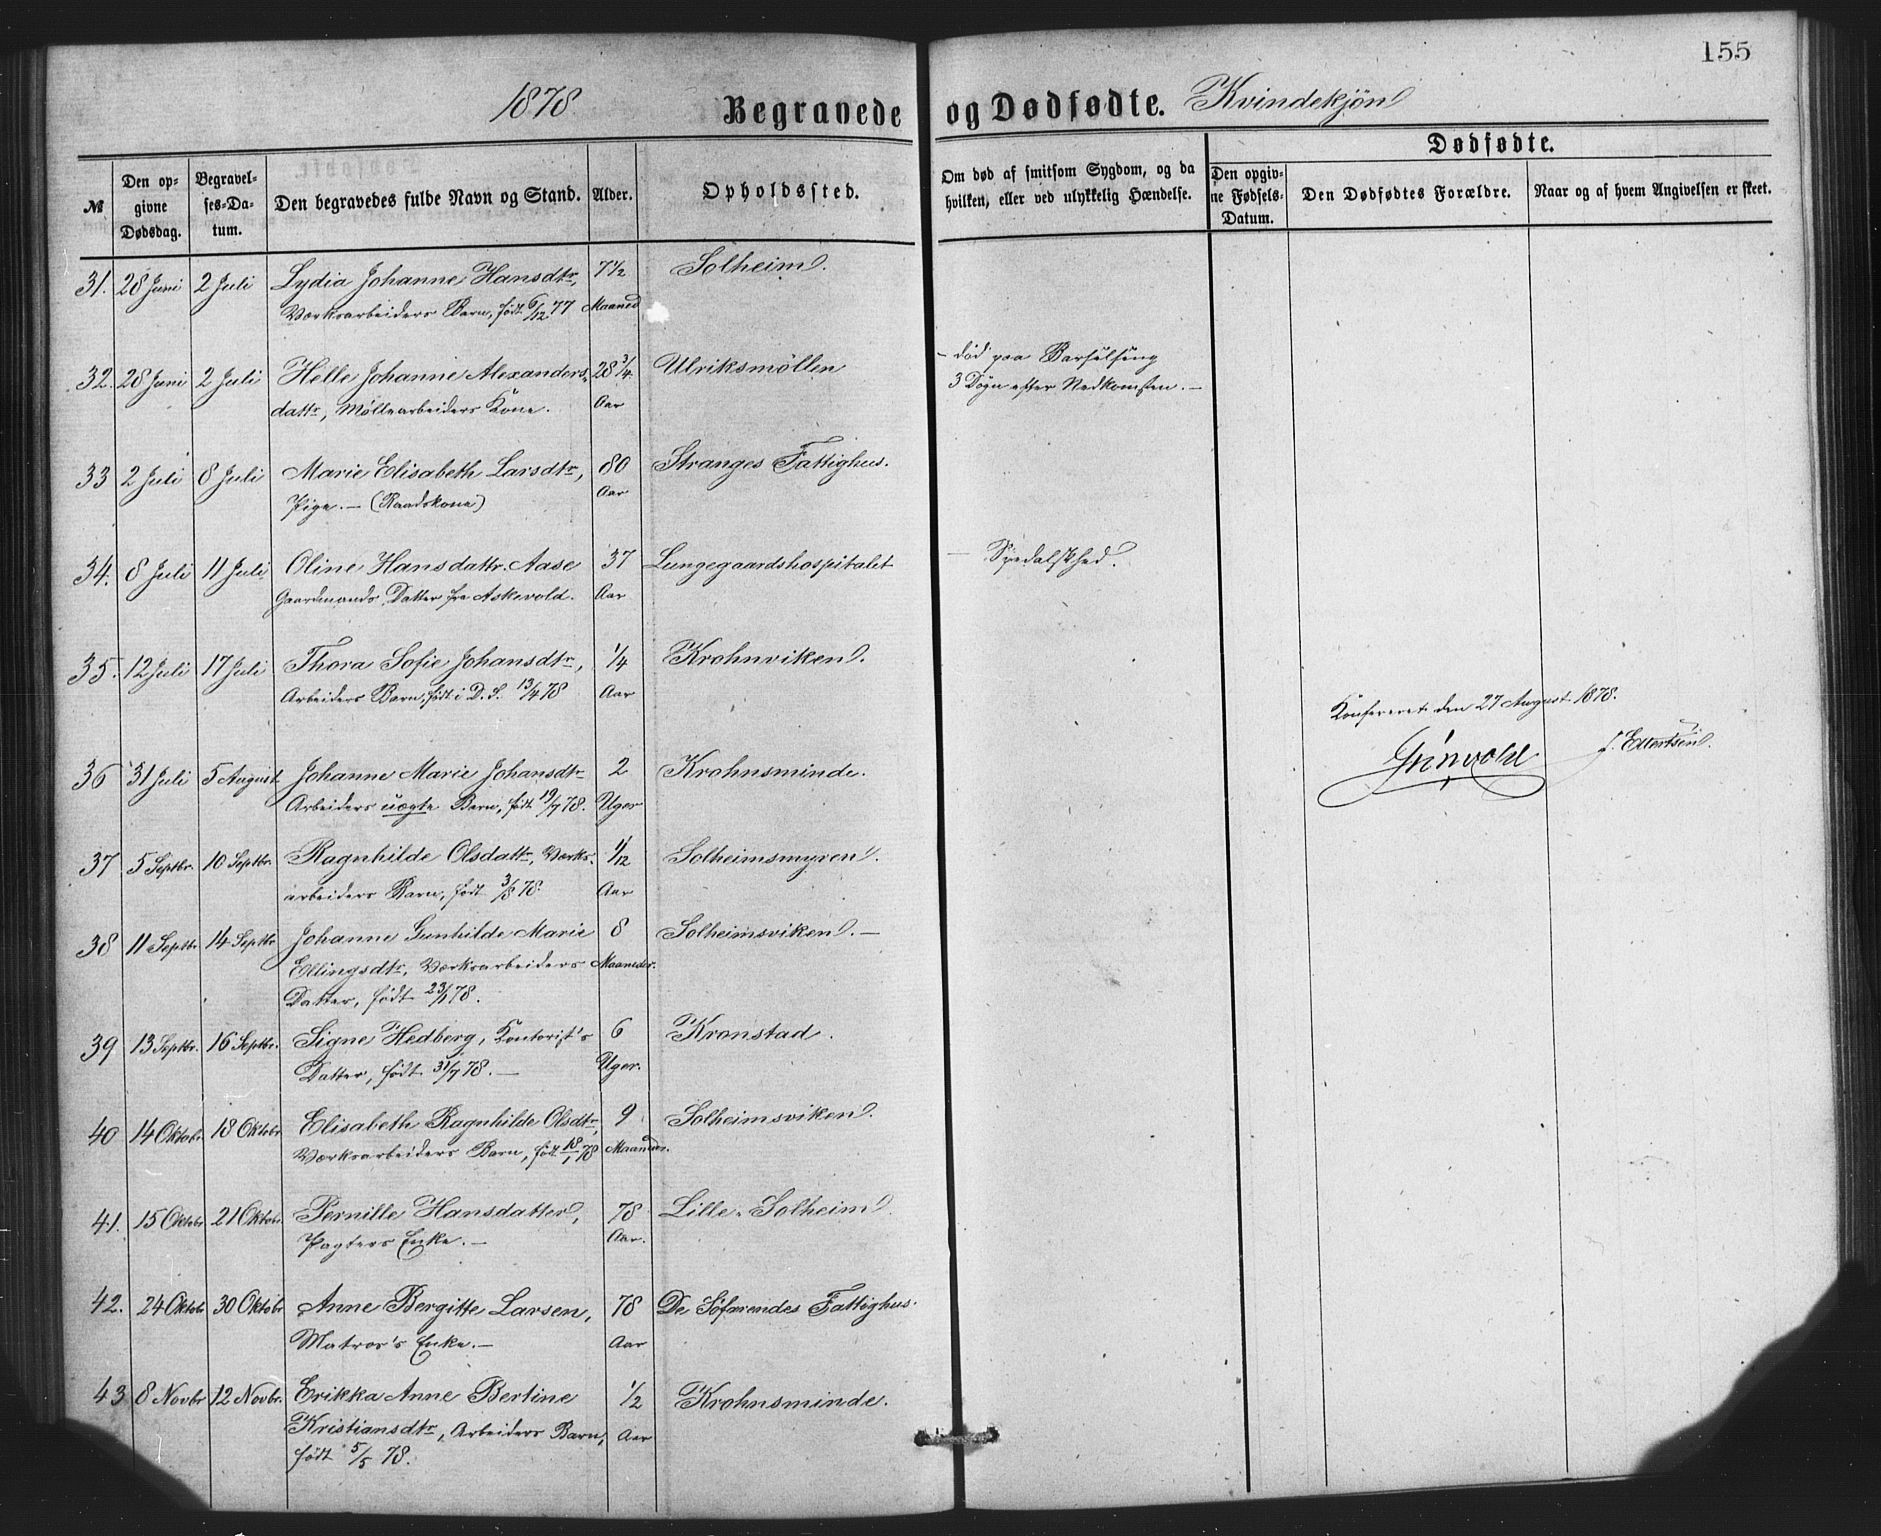 155
1878. Begravede og Dødfødte. Kvindekjøn
№
Den opgivne Dødsdag.
Begravelses-Datum.
Den begravedes fulde Navn og Stand.
Alder.
Opholdssted.
Om død af smitsom Sygdom, og da hvilken, eller ved ulykkelig Hændelse.
Dødfødte.
Den opgivne Fødsels-Datum.
Den Dødfødtes Forældre.
Naar og af hvem Angivelsen er skeet.
31. 28 Juni 2 Juli Lydia Johanne Hansdtr, 7 1/2 Solheim.
Værksarbeiders Barn, født 6/12 77 Maaned
32. 28 Juni 2 Juli Helle Johanne Alexanders- 28 3/4 Ulriksmøllen – død paa Barselseng
dattr, Møllearbeiders Kone. Aar 3 Døgn efter Nedkomsten. –
33 2 Juli 8 Juli Marie Elisabeth Larsdtr, 80 Stranges Fattighus.
Pige. – (Raadskone) Aar
34. 8 Juli 11 Juli Oline Hansdattr. Aase 37 Lungegaardshospitalet – Spedalskhed.
Gaardmands Datter fra Askevold. Aar
35. 12 Juli 17 Juli Thora Sofie Johansdtr, 1/4 Krohnviken.
Arbeiders Barn, født i D. S. 13/4 78 Aar
Konfereret den 27 August 1878.
Grønvold J. Ellertsen.
36 31 Juli 5 August Johanne Marie Johansdtr 2 Krohnsminde.
Arbeiders uægte Barn, født 19/7 78. Uger
37 5 Septbr. 10 Septbr. Ragnhilde Olsdattr, Værks- 1/12 Solheimsmyren.
arbeiders Barn, født 3/8 78. Aar
38 11 Septbr 14 Septbr Johanne Gunhilde Marie 8 Solheimsviken. –
Ellingsdtr, Værksarbeiders Maaneder.
Datter, født 23/1 78.
39 13 Septbr. 16 Septbr. Signe Hedberg, Kontorist's 6 Kronstad.
Datter, født 31/7 78. – Uger.
40 14 Oktobr. 18 Oktobr. Elisabeth Ragnhilde Olsdtr, 9 Solheimsviken.
Værksarbeiders Barn, født 18/1 78 Maaneder.
41. 15 Oktobr 21 Oktobr. Pernille Hansdatter, 78 Lille-Solheim.
Pagters Enke. – Aar.
42. 24 Oktobr 30 Oktobr Anne Bergitte Larsen, 78 De Søfarendes Fattighus.
Matros's Enke. – Aar
43 8 Novbr 12 Novbr. Erikka Anne Bertine 1/2 Krohnsminde.
Kristiansdtr, Arbeiders Barn, Aar
født 5/5 78.